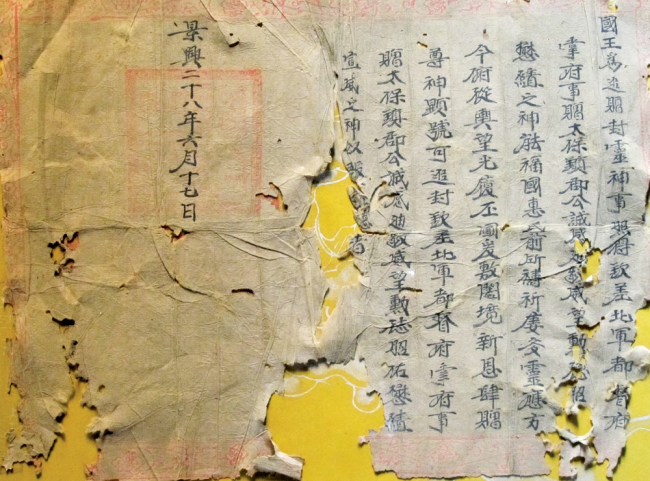 國王爲追贈封靈神事照得欽差北軍都督府
掌府事贈太保穎郡公誠感威望勳
懋績之神能福國惠民前所禱祈屢姿靈應方
今俯從輿望光膺丕圖廣敷闔境新恩肆贈
尊神顯號可追封欽差北軍都督府掌府事
贈太保穎郡公誠感助敬威望勳誌昭佑懋績
宣威之神以報者
景興二十八年六月十七日